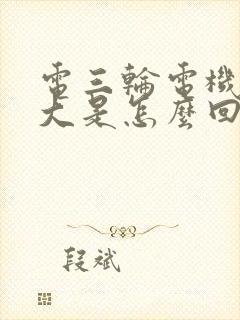 電三輪電機
大是怎麼回
段斌